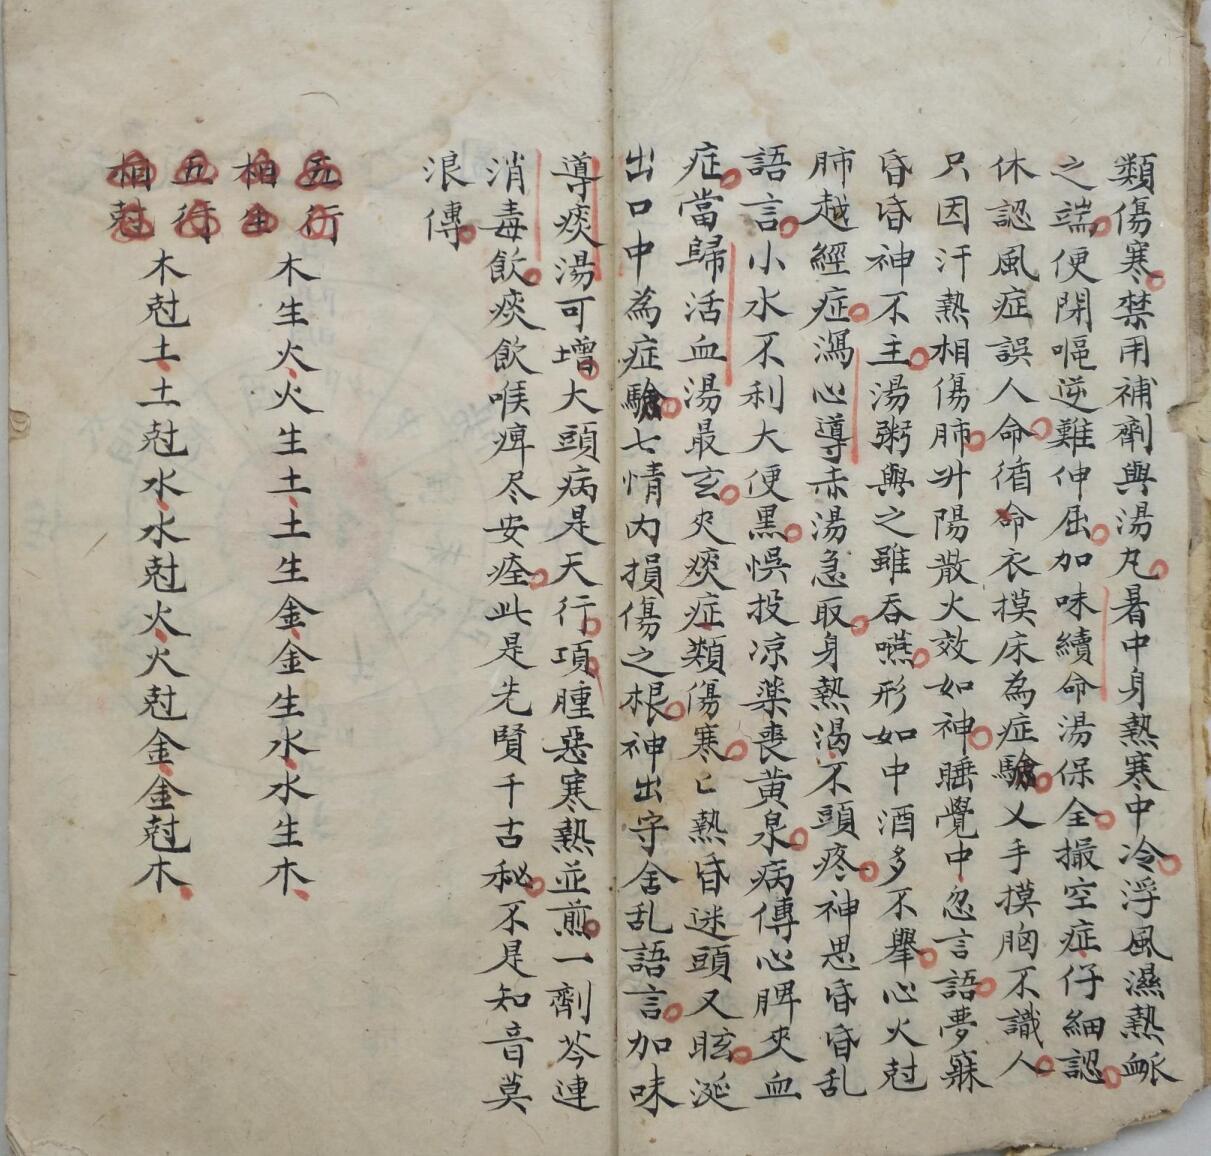 類傷寒禁用補劑與湯丸暑中身熱寒中冷浮風濕熱衇
之端便閉嘔逆難伸屈加味續命湯保全撮空症仔細認
休認風症誤人命循命衣摸床為症驗乂手摸胸不識人
只因汗熱相傷肺升陽散火效如神睡覺中忽言語夢寐
昏昏神不主湯粥與之雖吞嚥形如中酒多不舉心火尅
肺越經症瀉心導赤湯急取身熱渴不頭疼神思昏昏乱
語言小水不利大便黑悞投涼藥喪黃泉病傳心脾夾血
症當歸活血湯最玄夾痰症類傷寒亡熱昏迷頭又眩涎
出口中為症驗七情內損傷之根神出守舍乱語言加味
導痰湯可增大頭病是天行項腫惡寒熱並煎一劑芩連
消毒飲痰飲喉痺尽安痊此是先賢千古秘不是知音莫
浪傳
五行
相生
木生火火生土土生金金生水水生木
五行
相尅
木尅土土尅水水尅火火尅金金尅木